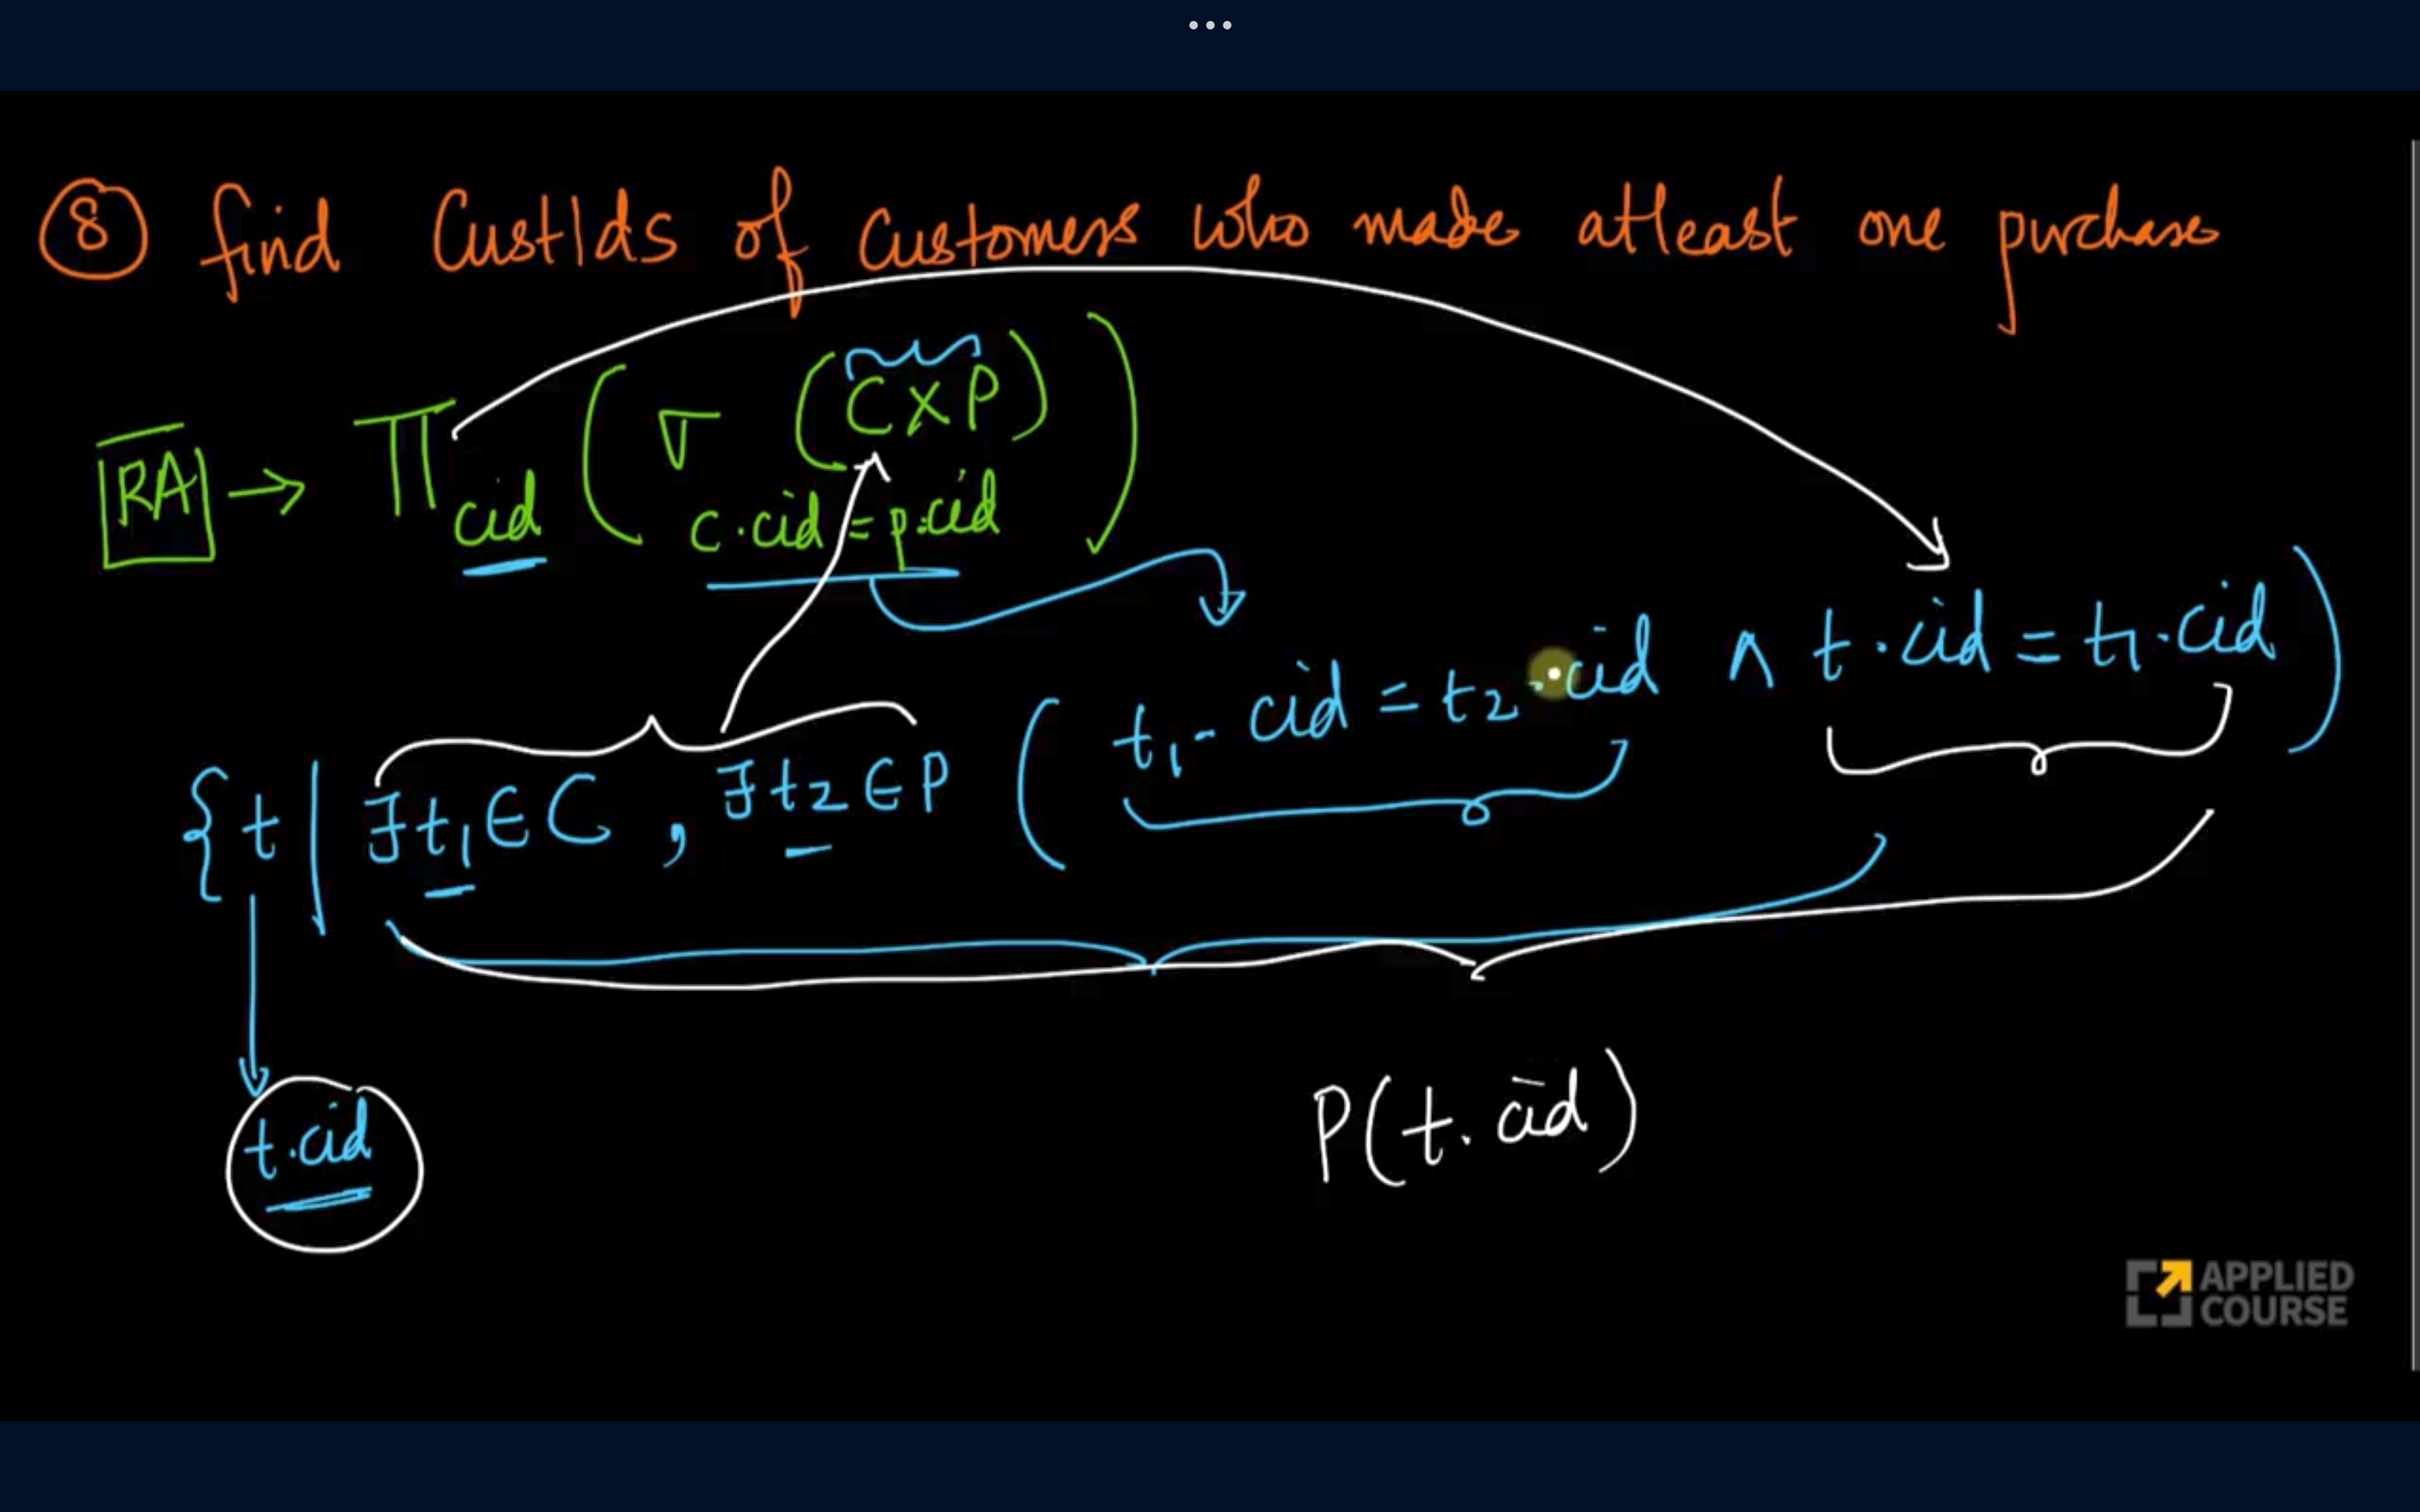 ⑧ find CustIds of Customers who made atleast one purchase
RA → Π cid ( σ c.cid = p.cid (C X P) )
{ t | ∃t₁ ∈ C , ∃t₂ ∈ P ( t₁.cid = t₂.cid ∧ t.cid = t₁.cid )
t.cid
P(t.cid)
APPLIED
COURSE